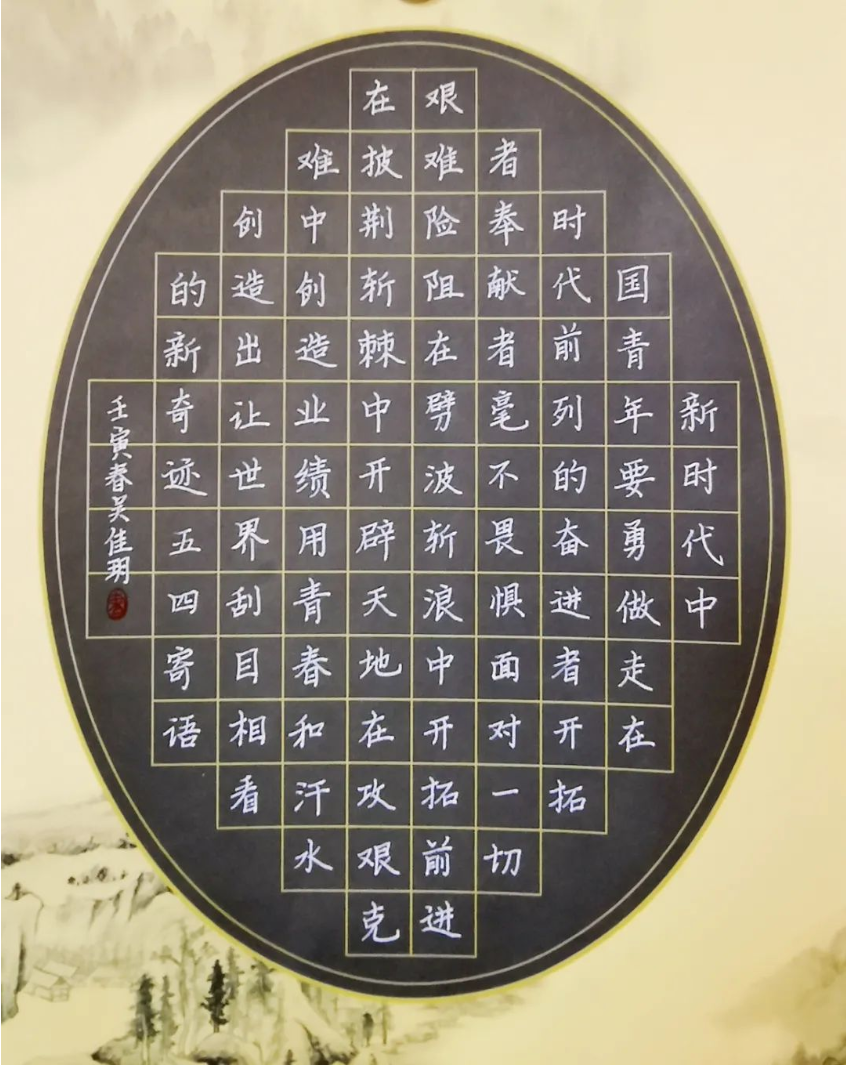 新时代中
国青年要勇做走在
时代前列的奋进者开拓
者奉献者毫不畏惧面对一切
艰难险阻在劈波斩浪中开拓前进
在披荆斩棘中开辟天地在攻艰克
难中创造业绩用青春和汗水
创造出让世界刮目相看
的新奇迹五四寄语
壬寅春吴佳玥